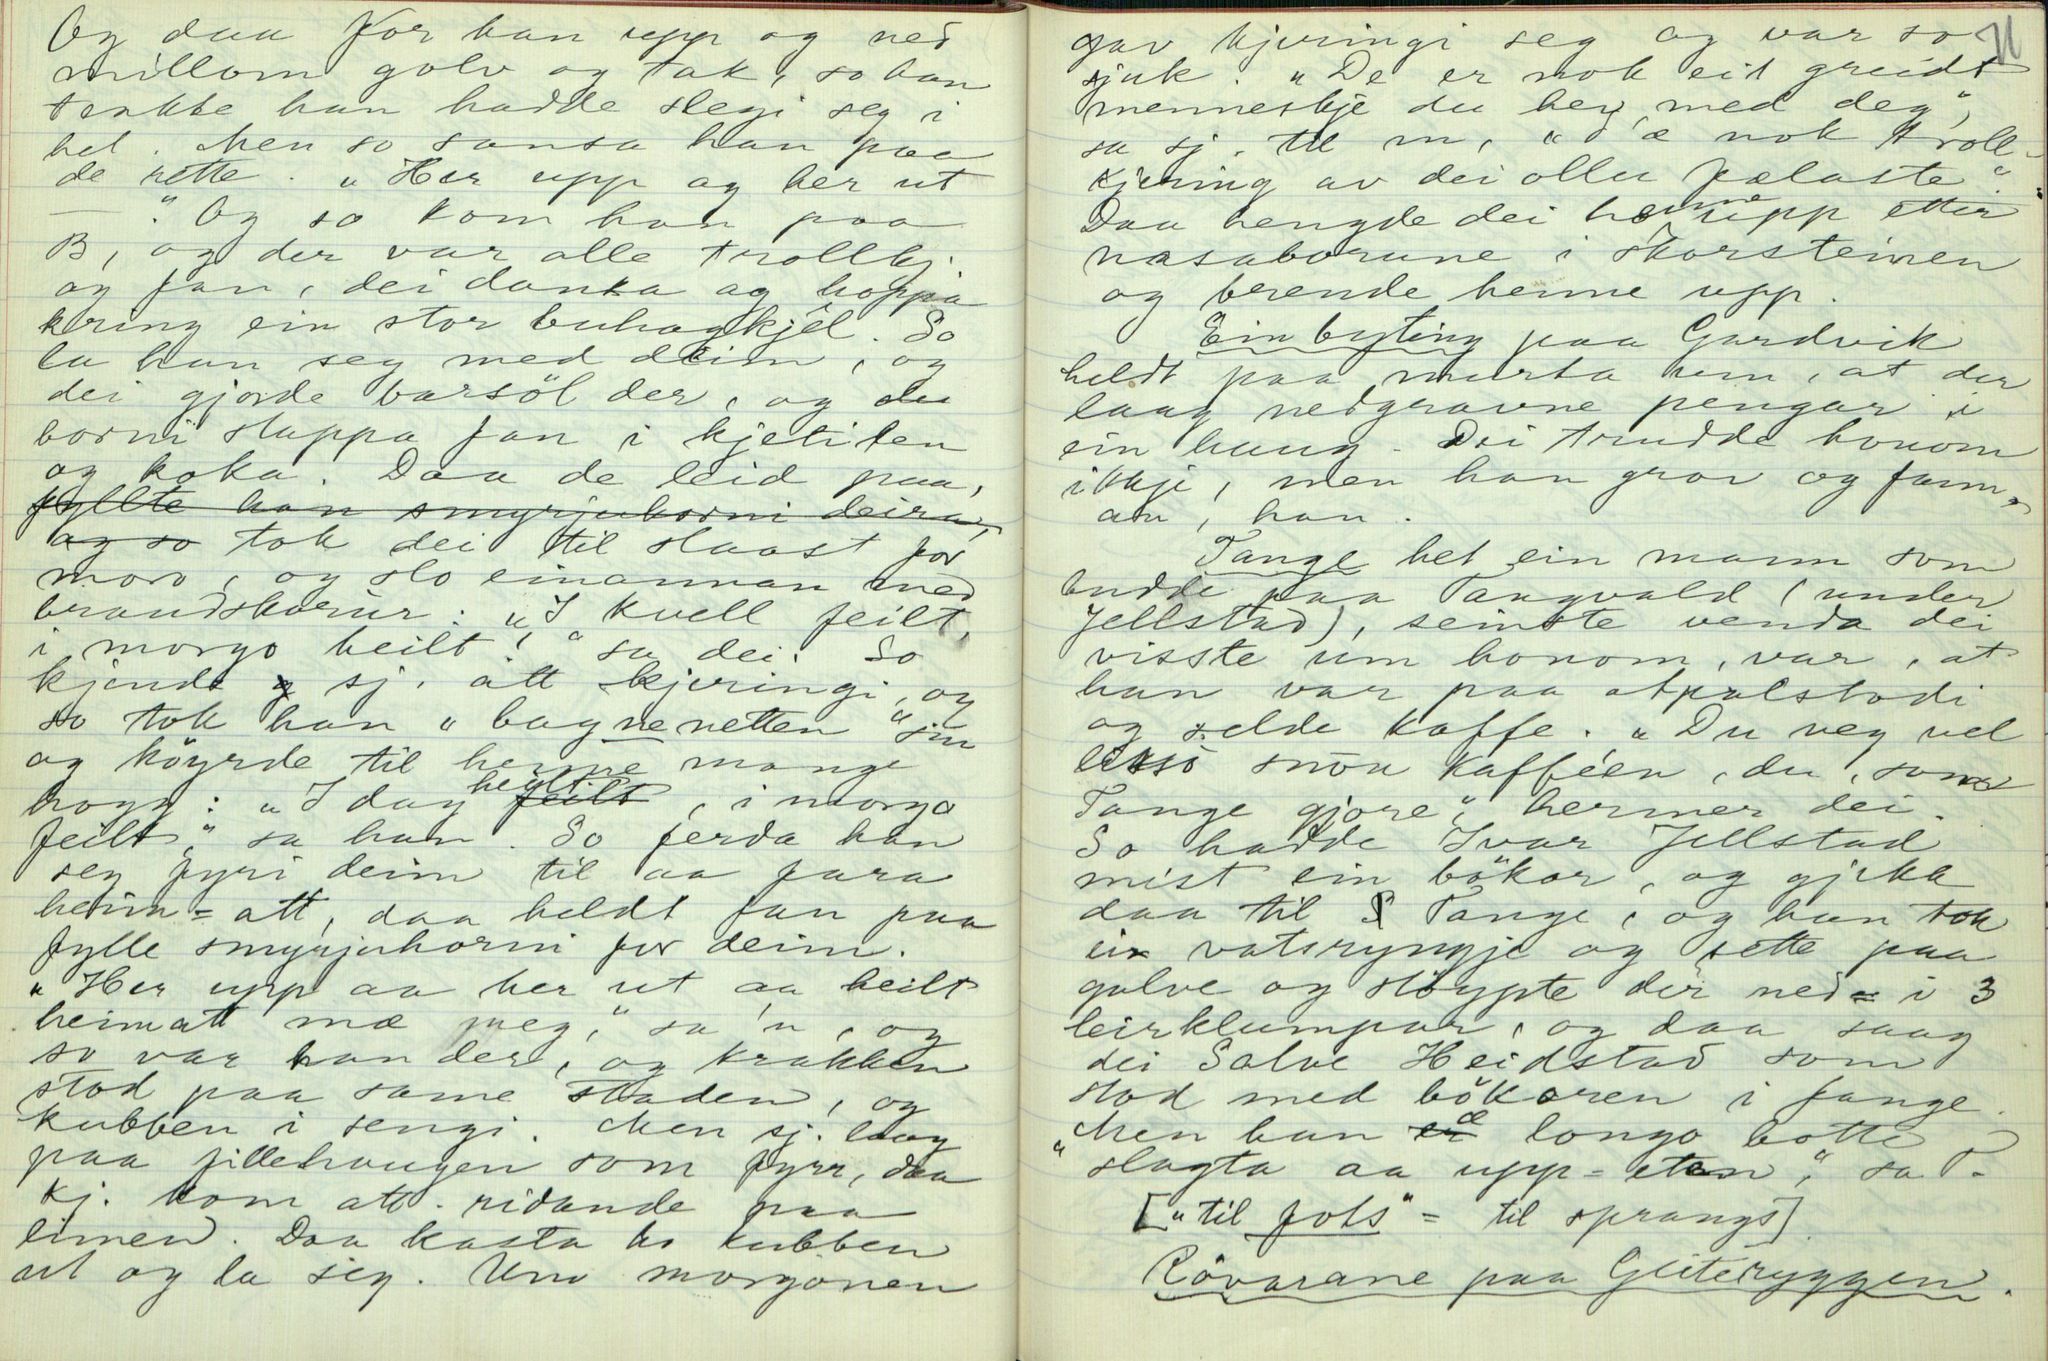 Og daa for han upp og ned
millom golv og tak, so han
trukke han hadde slegi seg i
hel. Men so sansa han paa
de rette. "Her upp og her ut
—". Og so kom han paa
B, og der var alle trollkj.
og fan, dei dansa og hoppa
kring ein stor buhagkjel. So
la han seg med deim, og
dei gjorde barsöl der, og
borni slappa fan i kjetilen
og koka. Daa de leid paa,
fyllte han smyrjuhorni deira,
og so tok dei til slaast for
moro, og slo einannan med
brandskorur: "I kvell feilt,
i morgo heilt", sa dei. So
kjende sj. att kjeringi, og
so tok han "bagnenetten" sin
og köyrde til henne mange
hogg: "I dag heilt feilt, i morgo
feilt," sa han. So ferda han
seg fyri deim til aa fara
heim=att, daa heldt fan paa
fylle smyrjuhorni for deim.
"Her upp aa her ut aa heilt
heimatt mæ meg," sa 'n, og
so var han der, og krakken
stod paa same staden, og
kubben i sengi. Men sj. laag
paa fillehaugen som fyrr, daa
kj. kom att ridande paa
limen. Daa kasta ho kubben
ut og la seg. Um morgonen
71
gav kjeringi seg og var so
sjuk. "De er nok eit greidt
menneskje du hev med deg",
sa sj. til m, "d'æ nok troll-
kjering av dei aller fælaste".
Daa hengde dei henne upp etter
nasaborune i skorsteinen
og brende henne upp.
Ein byting paa Gardvik
heldt paa murta um, at der
laag nedgravne pengar i
ein haug. Dei trudde honom
ikkje, men han grov og fann=
an, han.
Tange het ein mann som
budde paa Tangvald (under
Jellstad), seinste venda dei
visste um honom, var, at
han var paa atpalstodi
og selde kaffe. "Du veg vel
lissö snöu kafféen, du, som
Tange gjore", hermer dei.
So hadde Ivar Jellstad
mist ein bökar, og gjekk
daa til Tange, og han tok
ein vatsryngje og sette paa
golve og slöypte der ned i 3
leirklumpar, og daa saag
dei Salve Heidstad som
stod med bökaren i fange.
"Men han er æ longo botte
slagta aa upp=eten," sa T.
["til fots" = til sprangs]
Rövarane paa Geiteryggen.